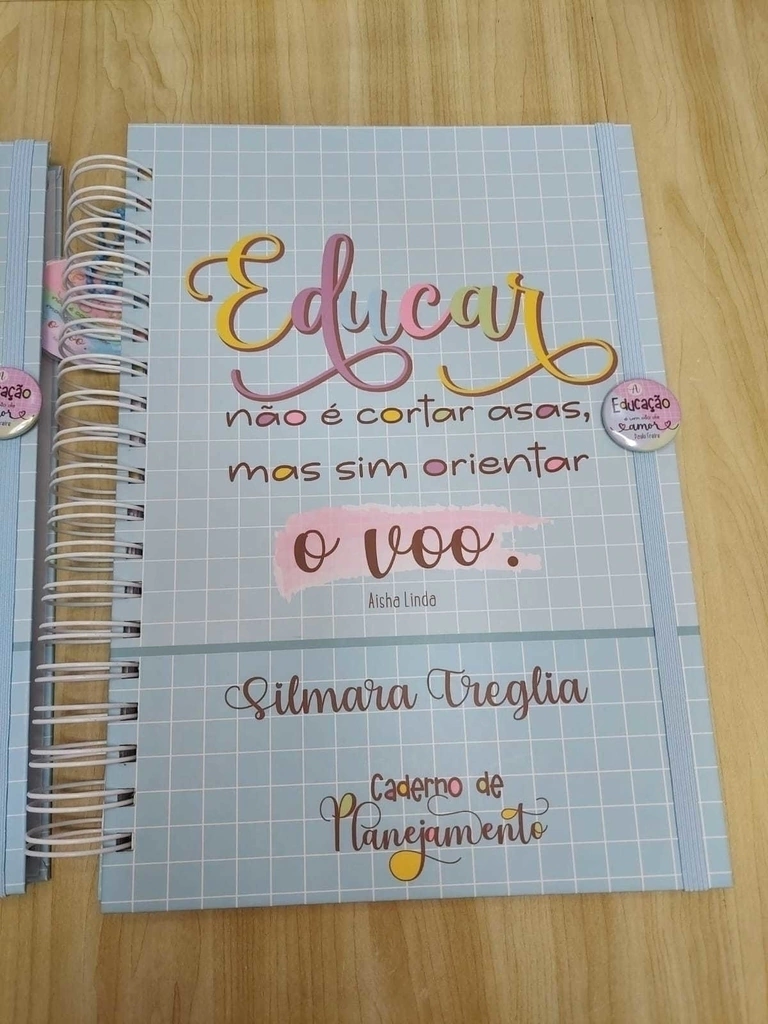 Educar
não é cortar asas,
mas sim orientar
o voo.
Aisha Linda
Silmara Treglia
Caderno de
Planejamento
A
Educação
é um ato de
amor
Paulo Freire